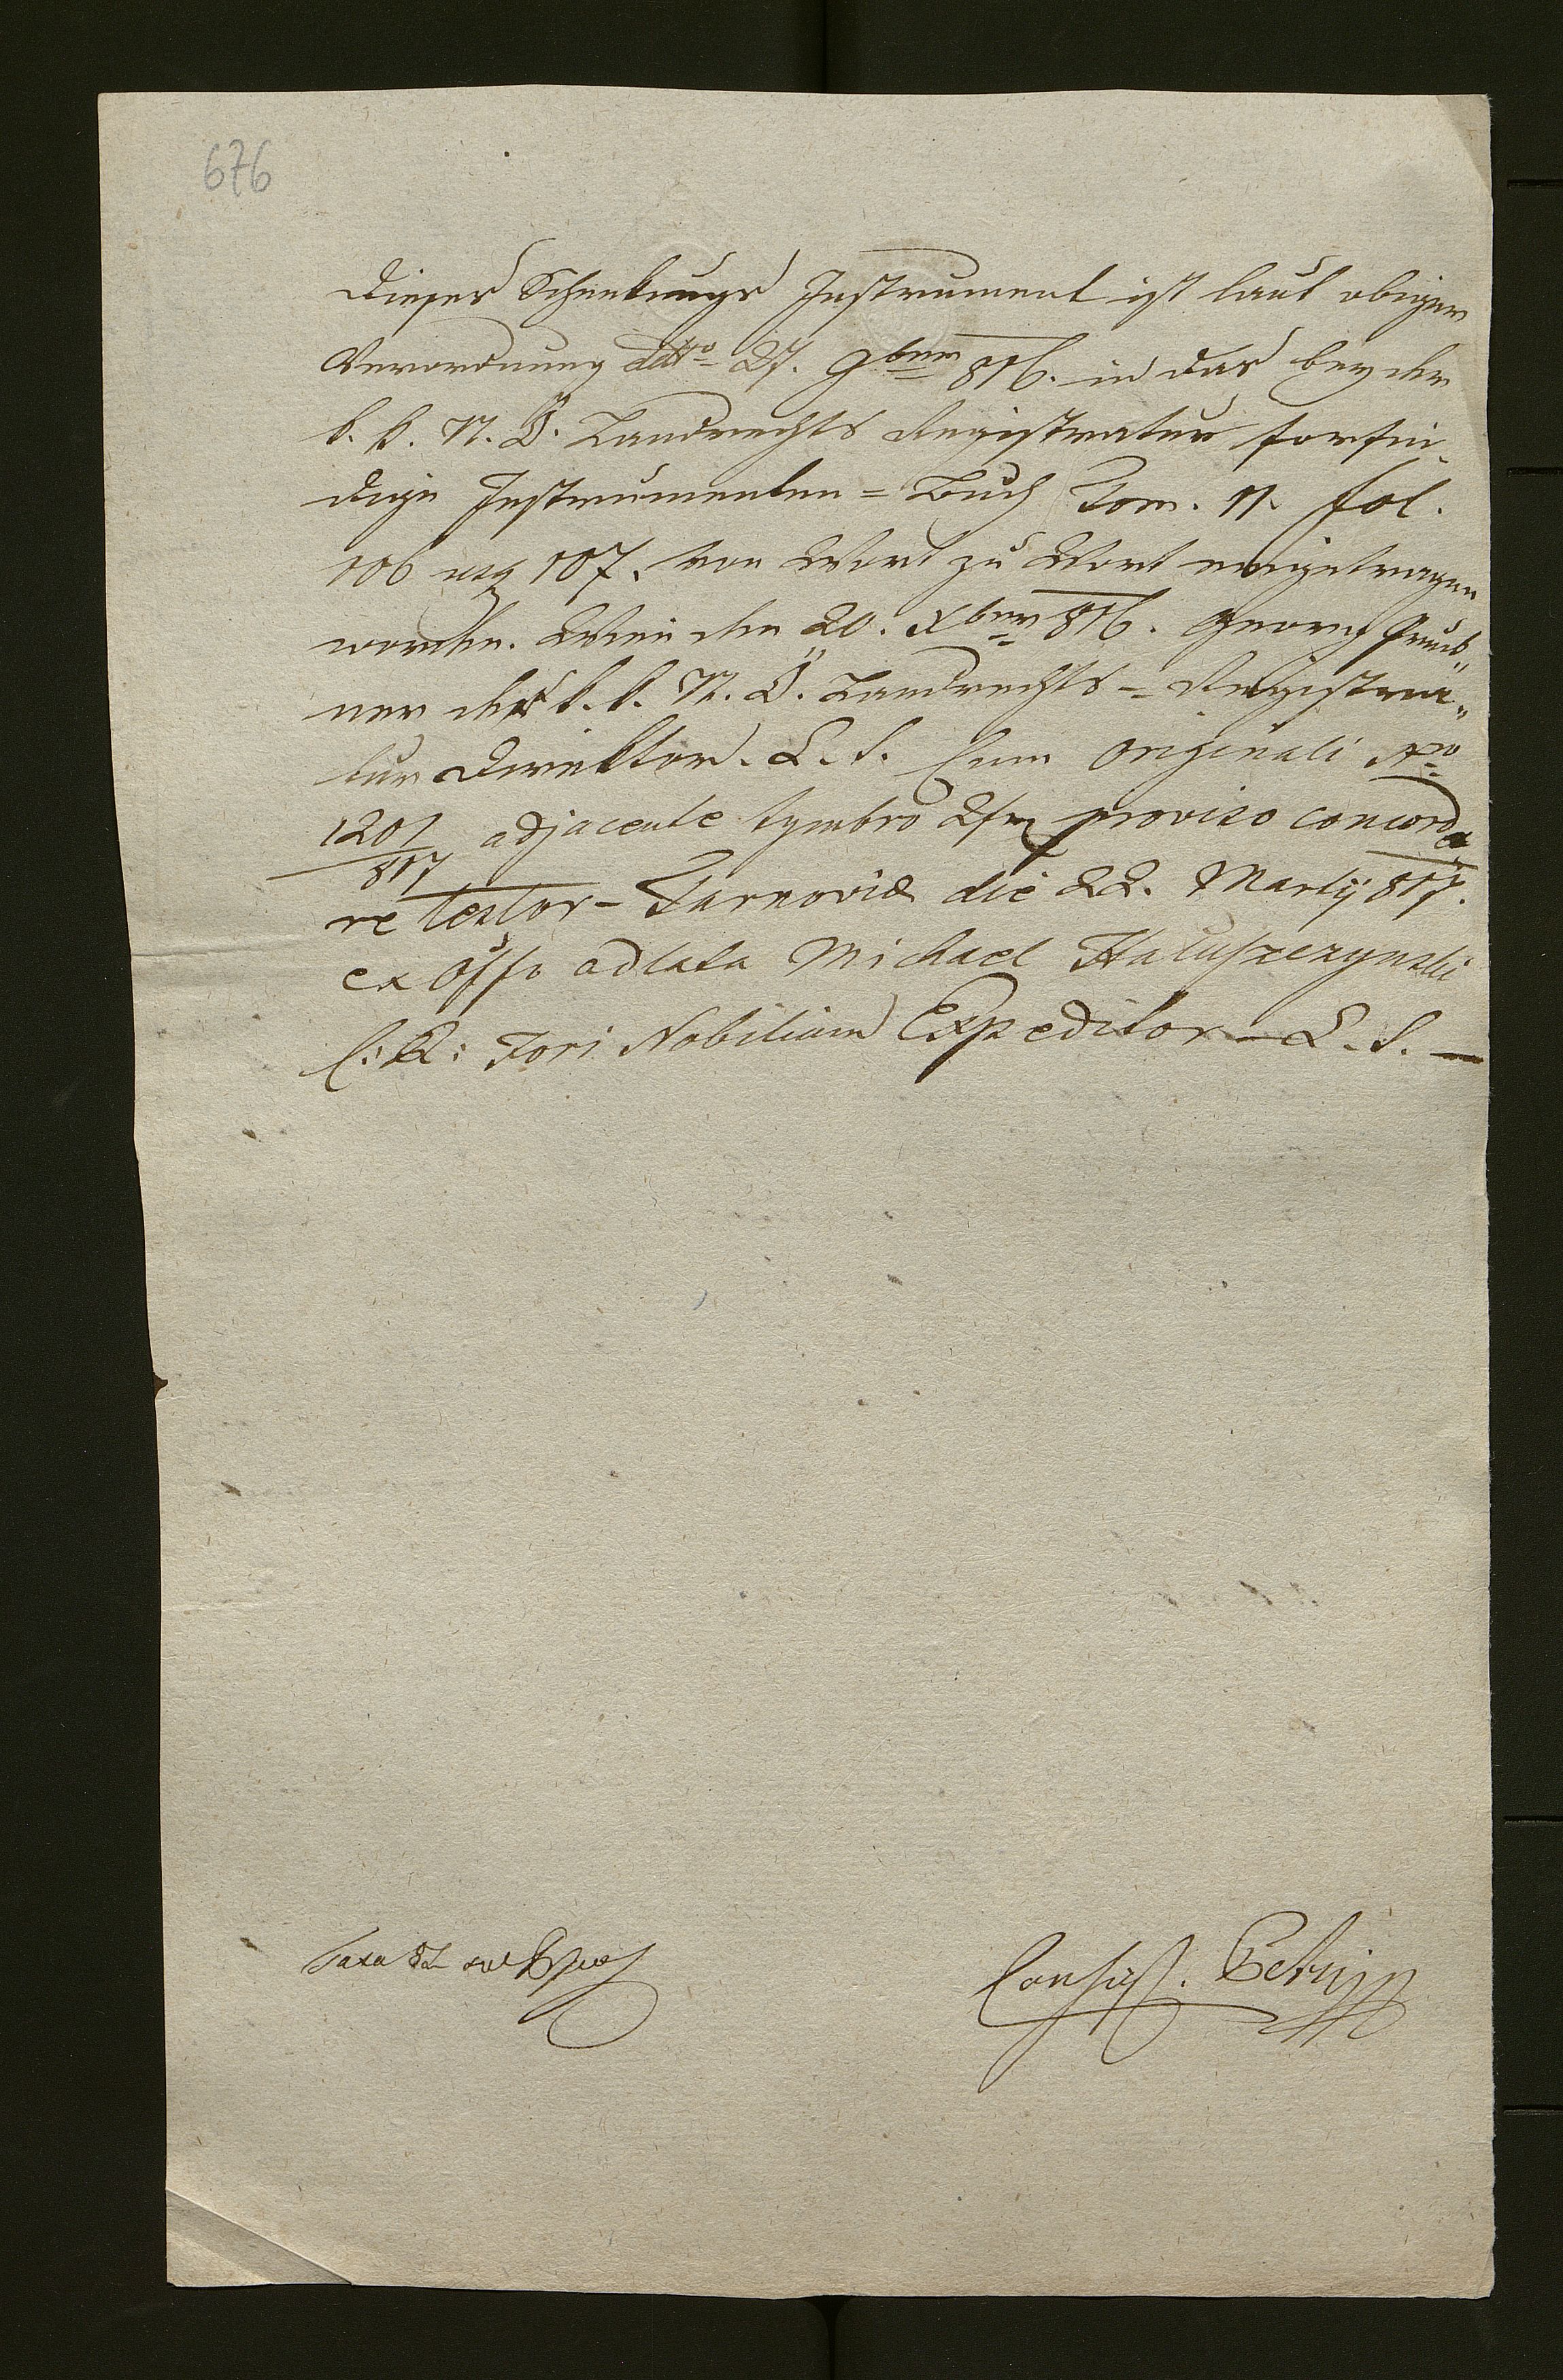 676
Dieses Schenkungs Instrument ist laut obiger
Verordnung ddto 27. 9ber 816. in das bey der
k. k. N. Ö. Landrechts Registratur forfin-
dige Instrumenten = Buch Tom. 11. fol.
106 usq 107. von Wort zu Wort eingetragen
worden. Wien den 20. Xber 816. Georg
ner der k. k. N. Ö. Landrechts = Registra„
tur Direktor. L. S. Cum Originali Nro
1201/817 adjacente tymbro 2fr proviso concorda„
re testor – Tarnoviæ die 22. Martij 817.
ex offo adlata Michael Haluszczynski
C: R: Fori Nobilium Expeditor – L. S. —
Taxa